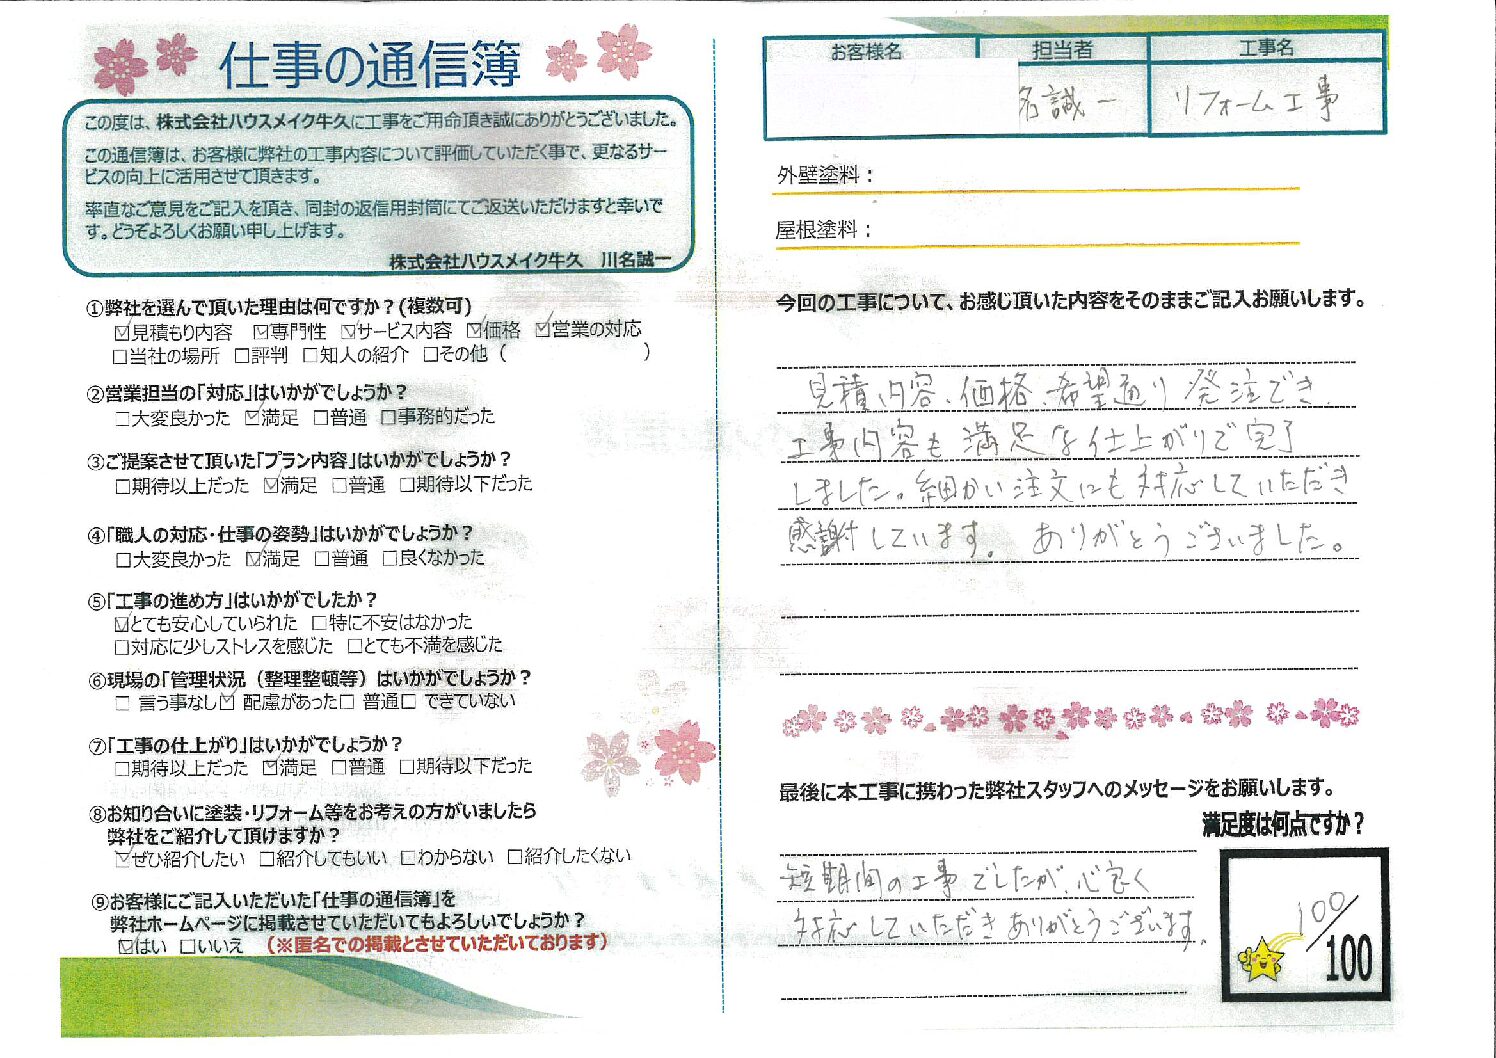 仕事の通信簿
この度は、株式会社ハウスメイク牛久に工事をご用命頂き誠にありがとうございました。
この通信簿は、お客様に弊社の工事内容について評価していただく事で、更なるサー
ビスの向上に活用させて頂きます。
率直なご意見をご記入を頂き、同封の返信用封筒にてご返送いただけますと幸いで
す。どうぞよろしくお願い申し上げます。
株式会社ハウスメイク牛久 川名誠一
①弊社を選んで頂いた理由は何ですか？(複数可)
☑見積もり内容 ☑専門性 ☑サービス内容 ☑価格 ☑営業の対応
□当社の場所 □評判 □知人の紹介 □その他（ ）
②営業担当の「対応」はいかがでしょうか？
□大変良かった ☑満足 □普通 □事務的だった
③ご提案させて頂いた「プラン内容」はいかがでしょうか？
□期待以上だった ☑満足 □普通 □期待以下だった
④「職人の対応・仕事の姿勢」はいかがでしょうか？
□大変良かった ☑満足 □普通 □良くなかった
⑤「工事の進め方」はいかがでしたか？
☑とても安心していられた □特に不安はなかった
□対応に少しストレスを感じた □とても不満を感じた
⑥現場の「管理状況（整理整頓等）はいかがでしょうか？
□ 言う事なし☑ 配慮があった□ 普通□ できていない
⑦「工事の仕上がり」はいかがでしょうか？
□期待以上だった ☑満足 □普通 □期待以下だった
⑧お知り合いに塗装・リフォーム等をお考えの方がいましたら
弊社をご紹介して頂けますか？
☑ぜひ紹介したい □紹介してもいい □わからない □紹介したくない
⑨お客様にご記入いただいた「仕事の通信簿」を
弊社ホームページに掲載させていただいてもよろしいでしょうか？
☑はい □いいえ （※匿名での掲載とさせていただいております）
お客様名 担当者 工事名
名誠一 リフォーム工事
外壁塗料：
屋根塗料：
今回の工事について、お感じ頂いた内容をそのままご記入お願いします。
見積、内容、価格、希望通り発注でき、
工事内容も満足な仕上がりで完了
しました。細かい注文にも対応していただき
感謝しています。ありがとうございました。
最後に本工事に携わった弊社スタッフへのメッセージをお願いします。
満足度は何点ですか？
短期間の工事でしたが、心良く
対応していただきありがとうございます。
100/100